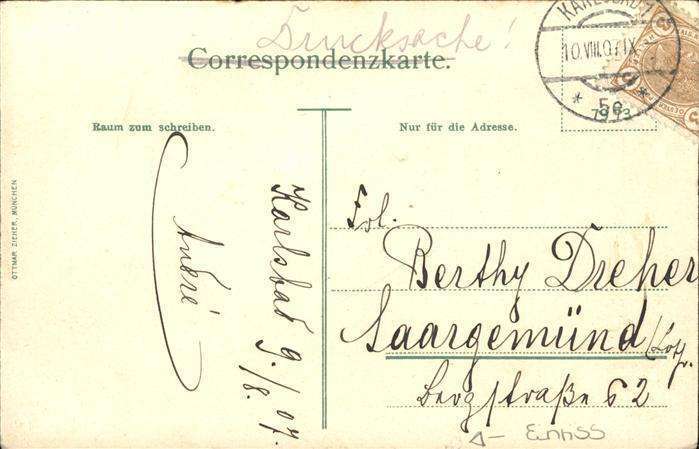 Drucksache!
Correspondenzkarte.
KARLSBAD 1
10.VIII.07.IX
* 5e *
7973
Raum zum schreiben.
Nur für die Adresse.
OTTMAR ZIEHER, MÜNCHEN
Karlsbad 9./8. 07.
André
Frl.
Berthy Dreher
Saargemünd /Lothr.
Bergstraße 62